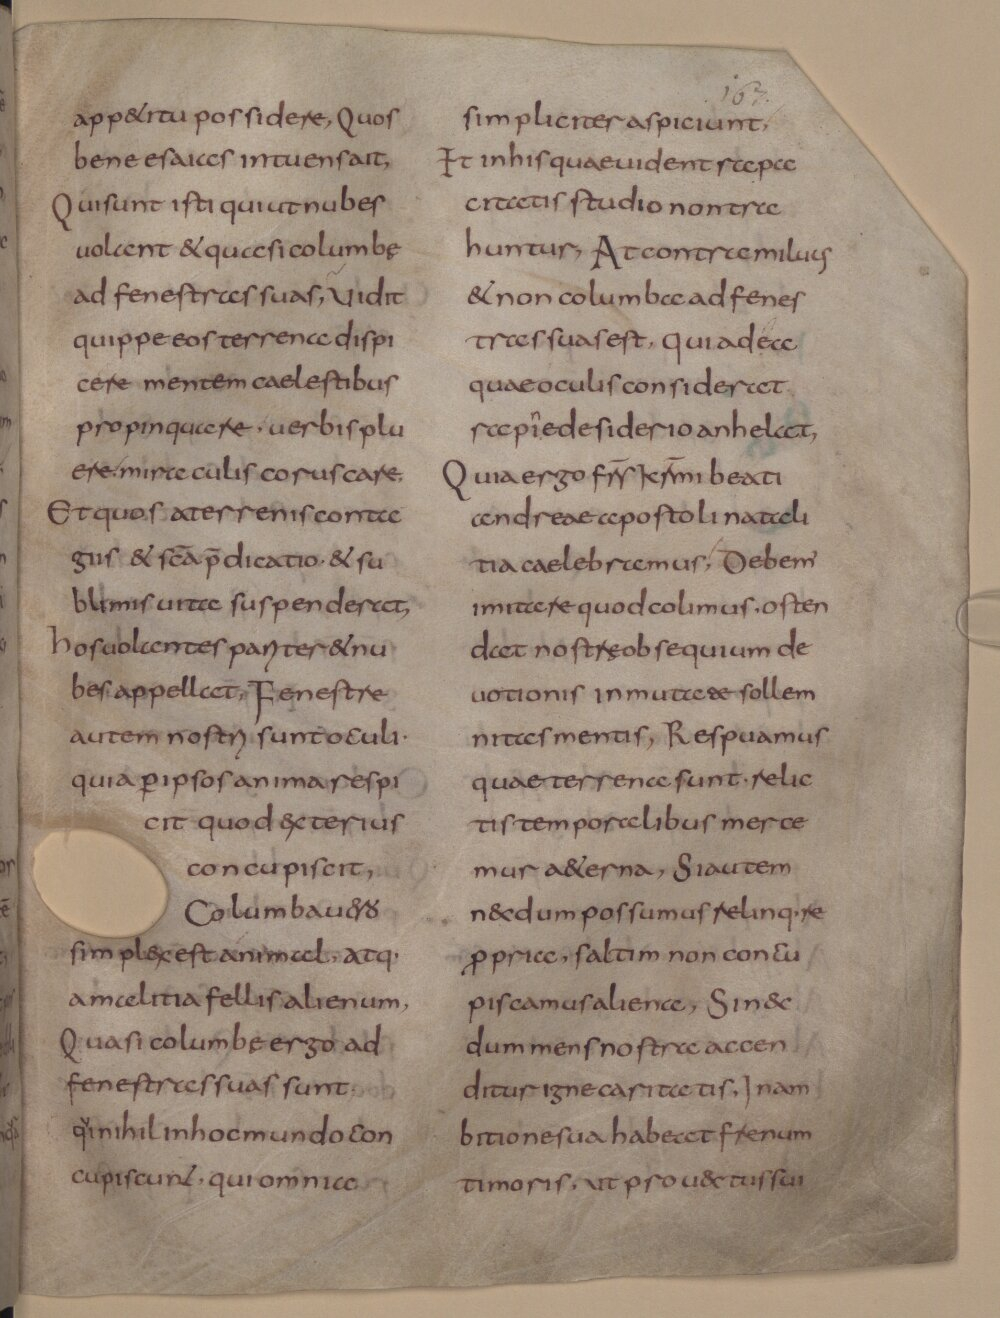 163.
app&itu possidere, Quos
bene esaias intuens ait,
Qui sunt isti qui ut nubes
uolant & quasi columbę
ad fenestras suas, Vidit
quippe eos terrena dispi
cere mentem caelestibus
propinquare · uerbis plu
ere. miraculis coruscare.
Et quos a terrenis conta
giis & sc̄a p̄dicatio · & su
blimis uita suspenderat,
hos uolantes pariter & nu
bes appellat, Fenestre
autem nostri sunt oculi ·
quia p̱ ipsos anima respi
cit quod exterius
concupiscit,
Columba u&o
simplex est animal, atq·
a malitia fellis alienum,
Quasi columbę ergo ad
fenestras suas sunt
qui nihil in hoc mundo con
cupiscunt · qui omnia
simpliciter aspiciunt,
Et in his quae uident rapa
citatis studio non tra
huntur, At contra miluus
& non columba ad fenes
tras suas est, qui ad ea
quae oculis considerat
rapinę desiderio anhelat,
Quia ergo fr̄s kr̄mi beati
andreae apostoli natali
tia caelebramus, Debem'
imitare quod colimus · osten
dat nostrę obsequium de
uotionis inmutatae sollem
nitas mentis, Respuamus
quae terrena sunt · relic
tis temporalibus merce
mur a&erna, Si autem
n&dum possumus relinq·re
ꝓpria, saltim non concu
piscamus aliena, Si n&
dum mens nostra accen
ditur igne caritatis, In am
bitione sua habeat frenum
timoris, ut prouectus sui